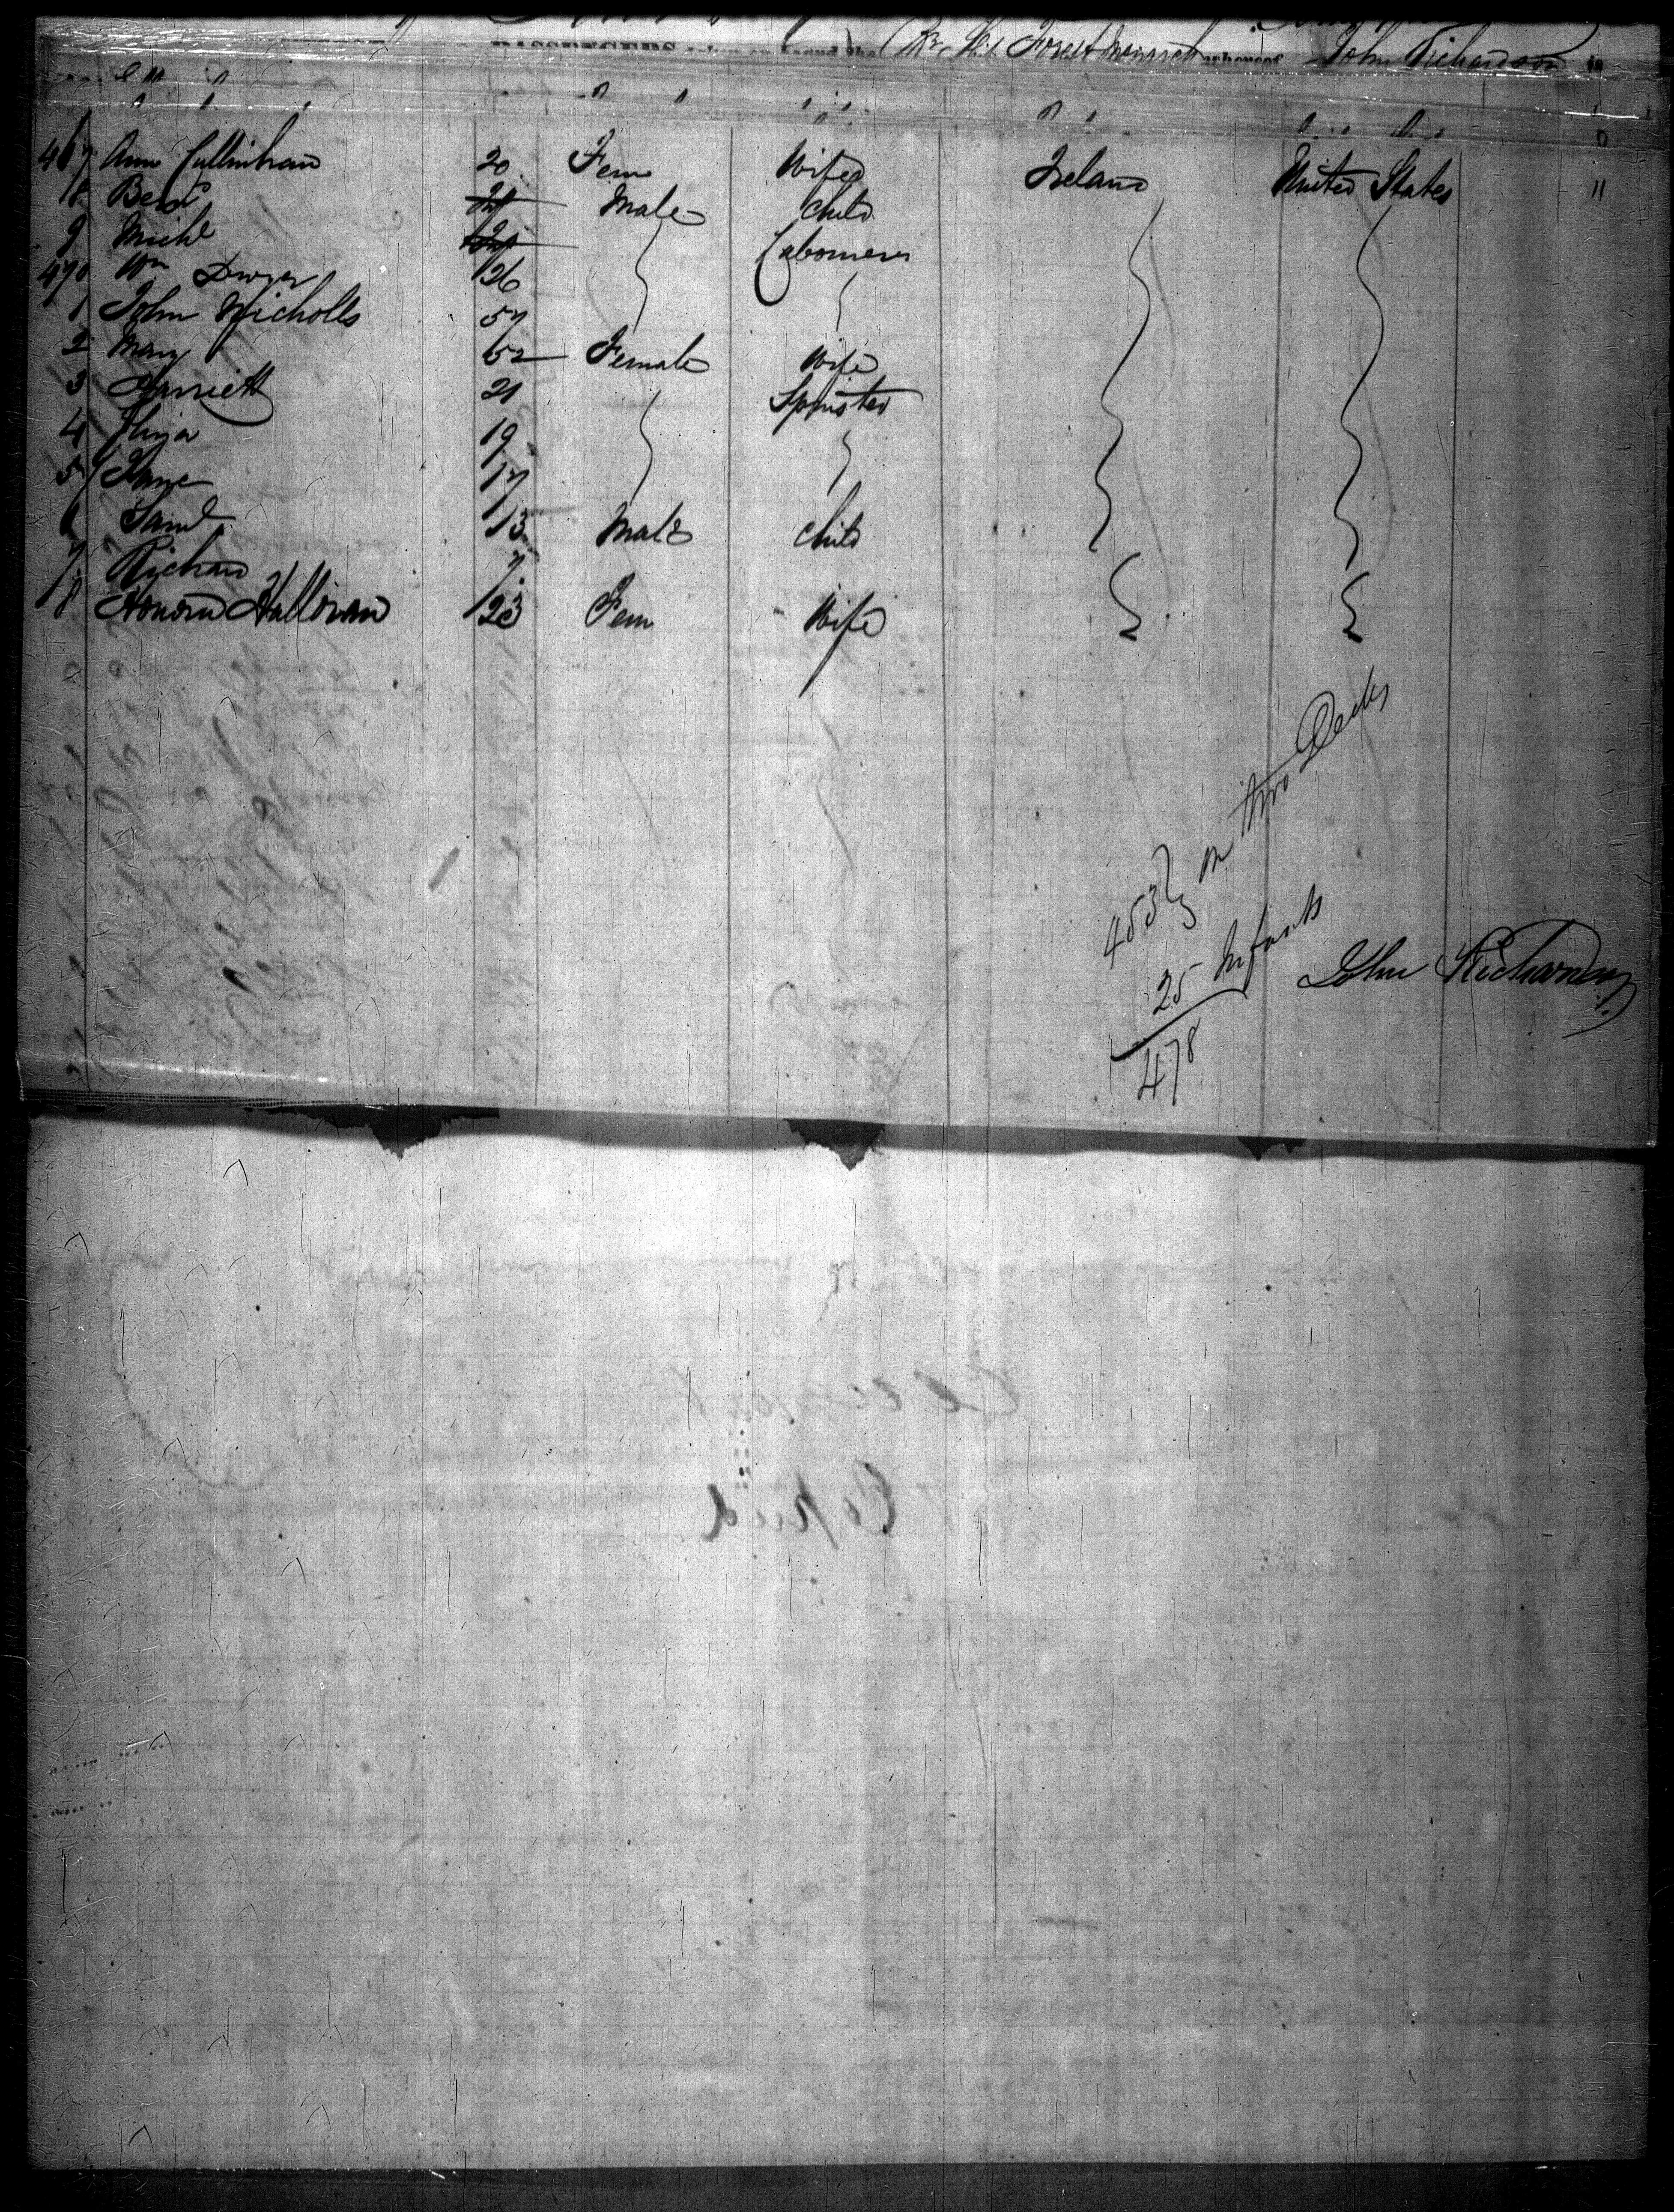 PASSENGERS taken on board the Br. Ship Forest Monarch whereof John Richardson is
467 Ann Cullinhan 20 Fem Wife Ireland United States "
8 Male Child
9 Michl Labourer
470 Wm Dwyer 26
1 John Nicholls 57
2 Mary 52 Female Wife
3 Harriett 21 Spinster
4 Eliza 19
5 Jane 17
6 Saml 13 Male Child
7 Richard 7
8 Honora Halloran 23 Fem Wife
453 on two Decks
25 Infants
478
John Richardson
Copied